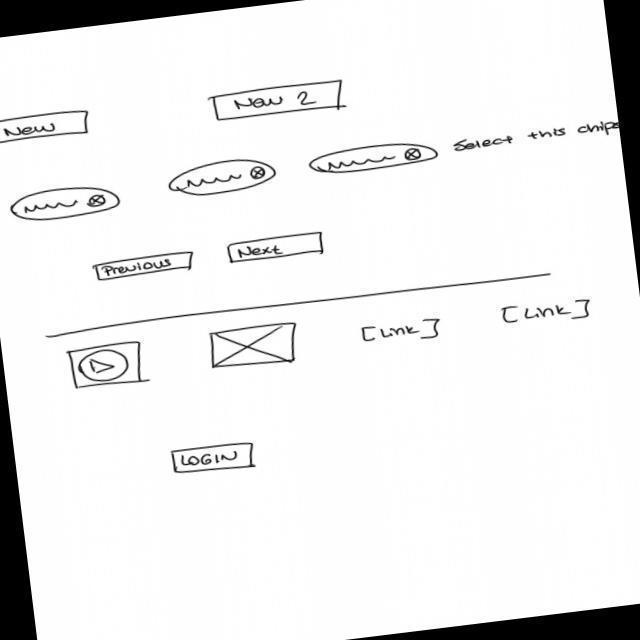 New
New 2
Select this chips
Previous
Next
[Link]
[Link]
LOGIN